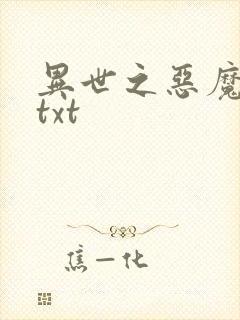 異世之惡魔
txt
焦一化